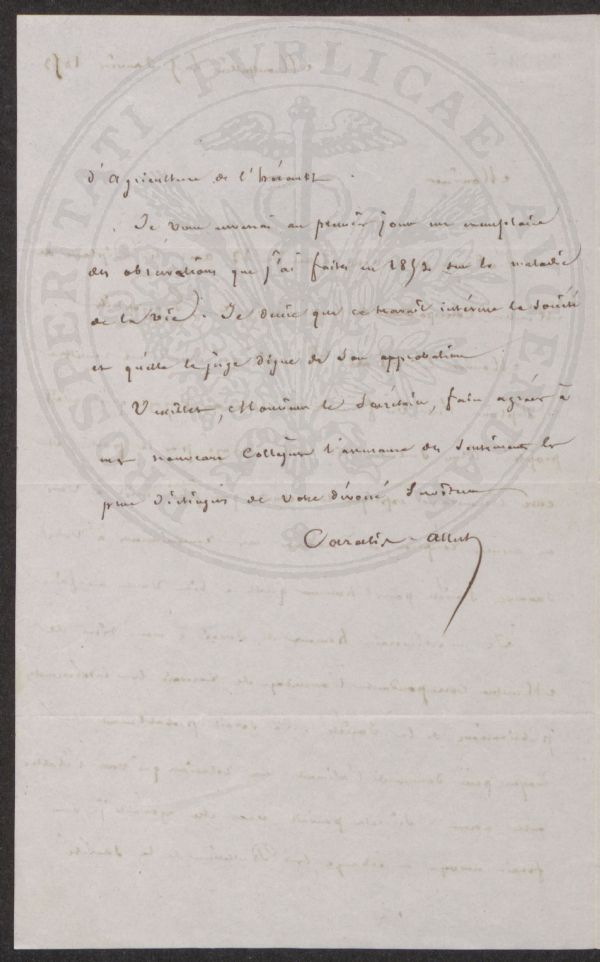 PROSPERITATI PUBLICAE AUGENDAE
d'agriculture de l'hérault.
Je vous enverrai au premier jour un exemplaire
des observations que j'ai faites en 1852 sur la maladie
de la vigne. Je désire que ce travail intéresse la Société
et qu'elle le juge digne de son approbation
Veuillez, Monsieur le Secrétaire, faire agréer à
mes nouveaux Collègues l'assurance des Sentiments les
plus distingués de votre dévoué Serviteur
Cazalis-Allut